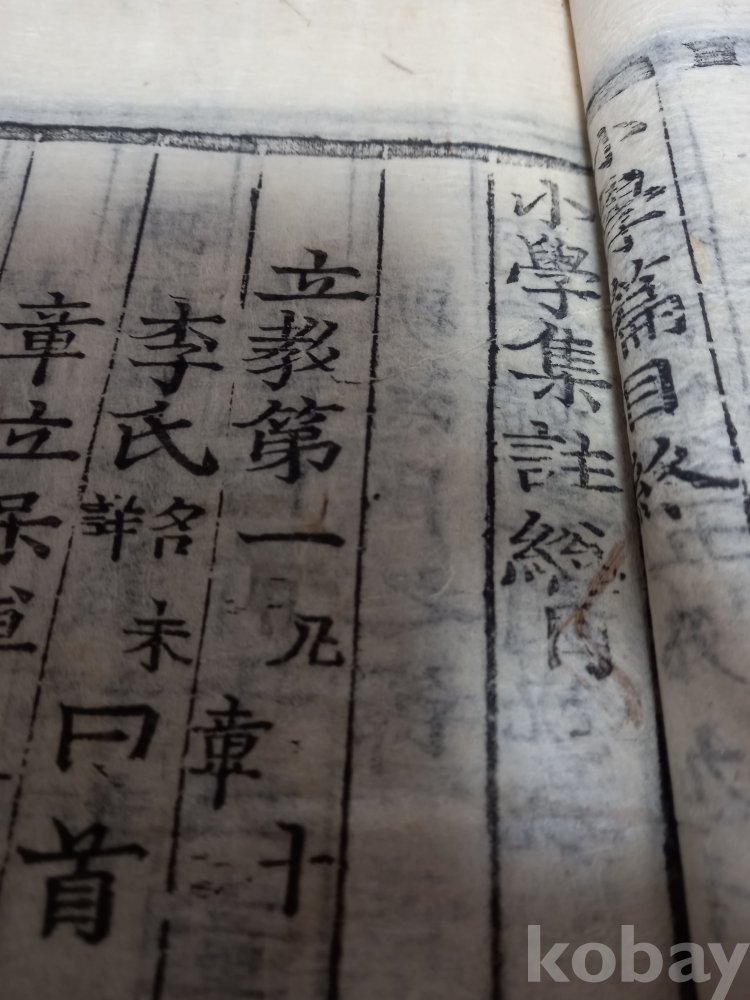 小學篇目終
小學集註總目
立教第一凡十章
李氏名未詳曰首
章立
kobay